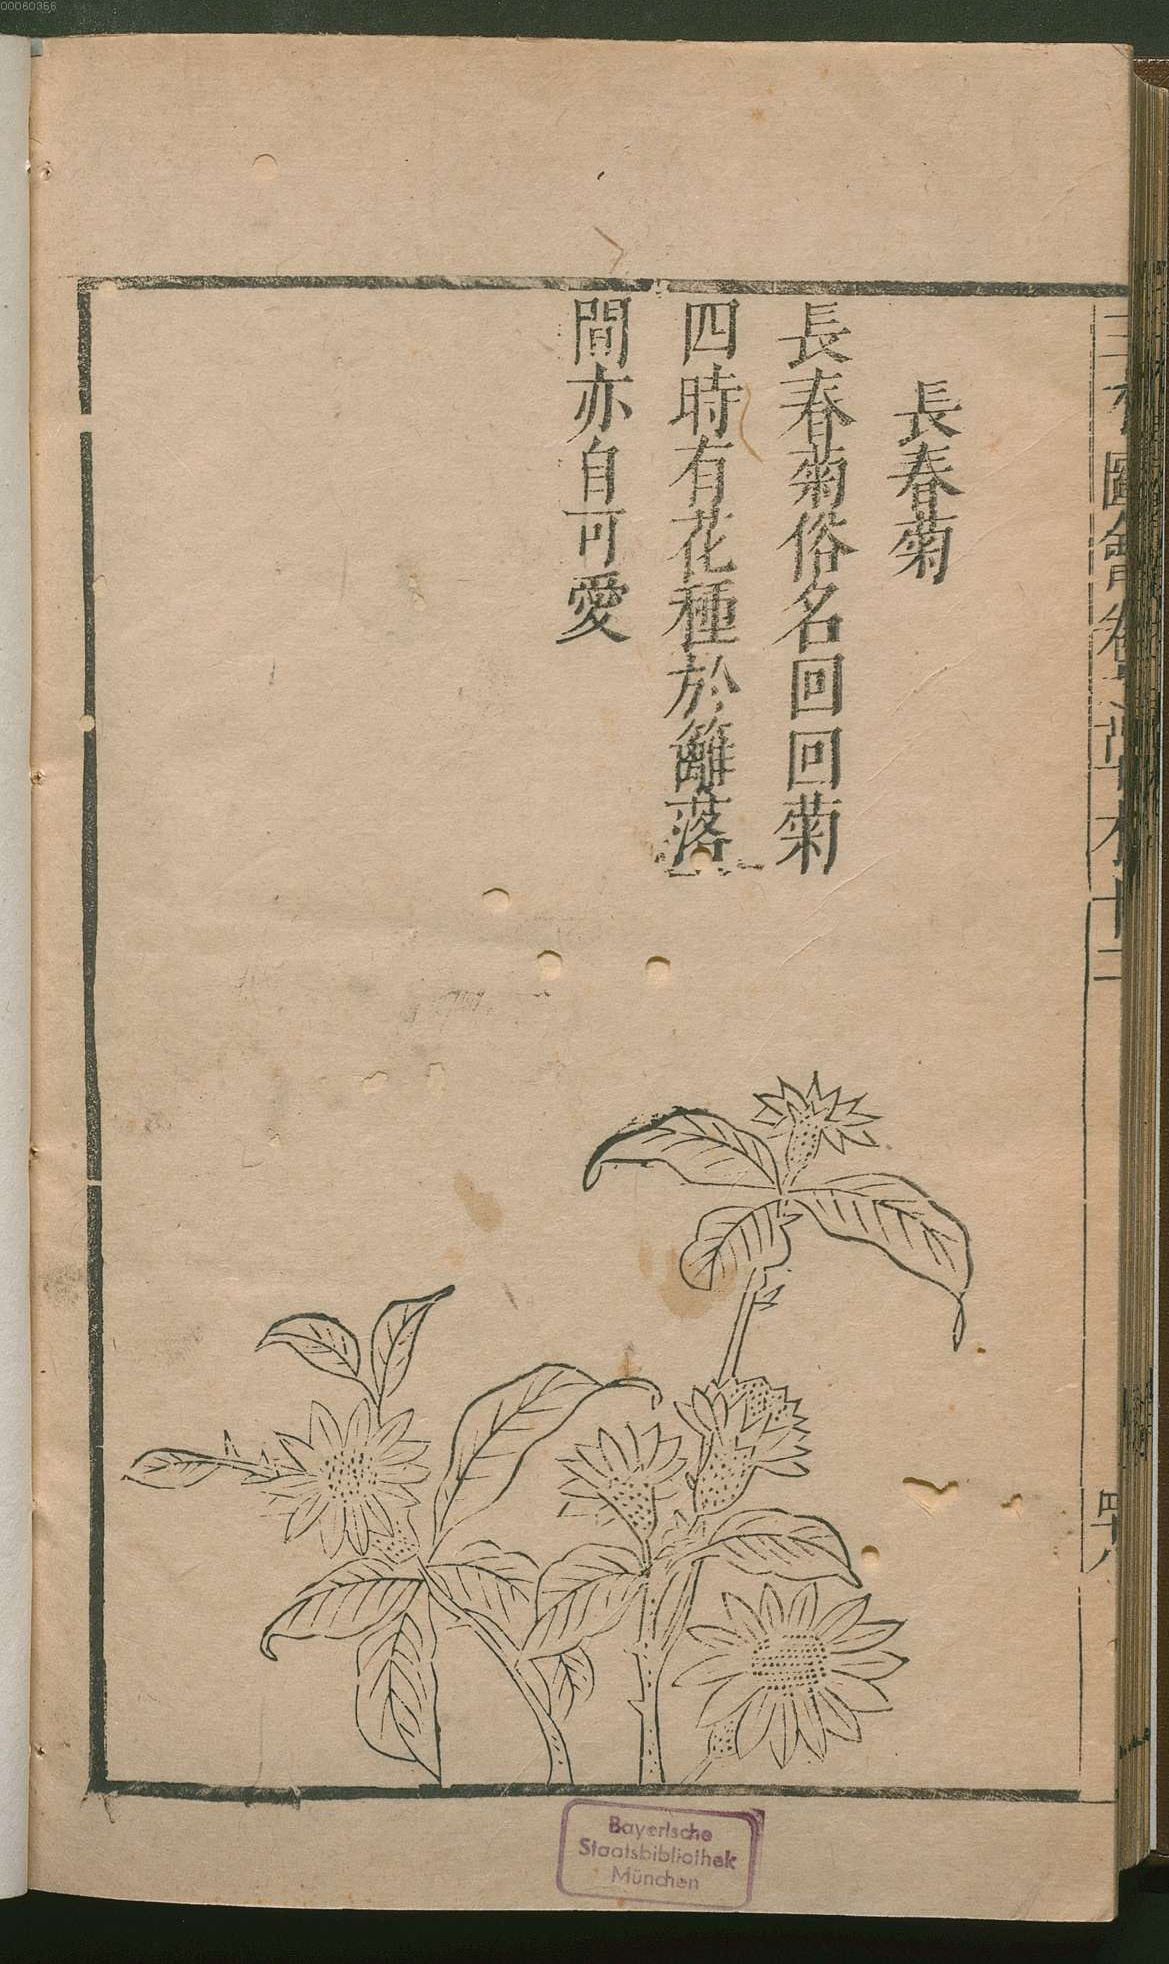 長春菊
長春菊俗名回回菊
四時有花種於籬落
間亦自可愛
圖會卷
草木十二
Bayerische
Staatsbibliothek
München
00060356